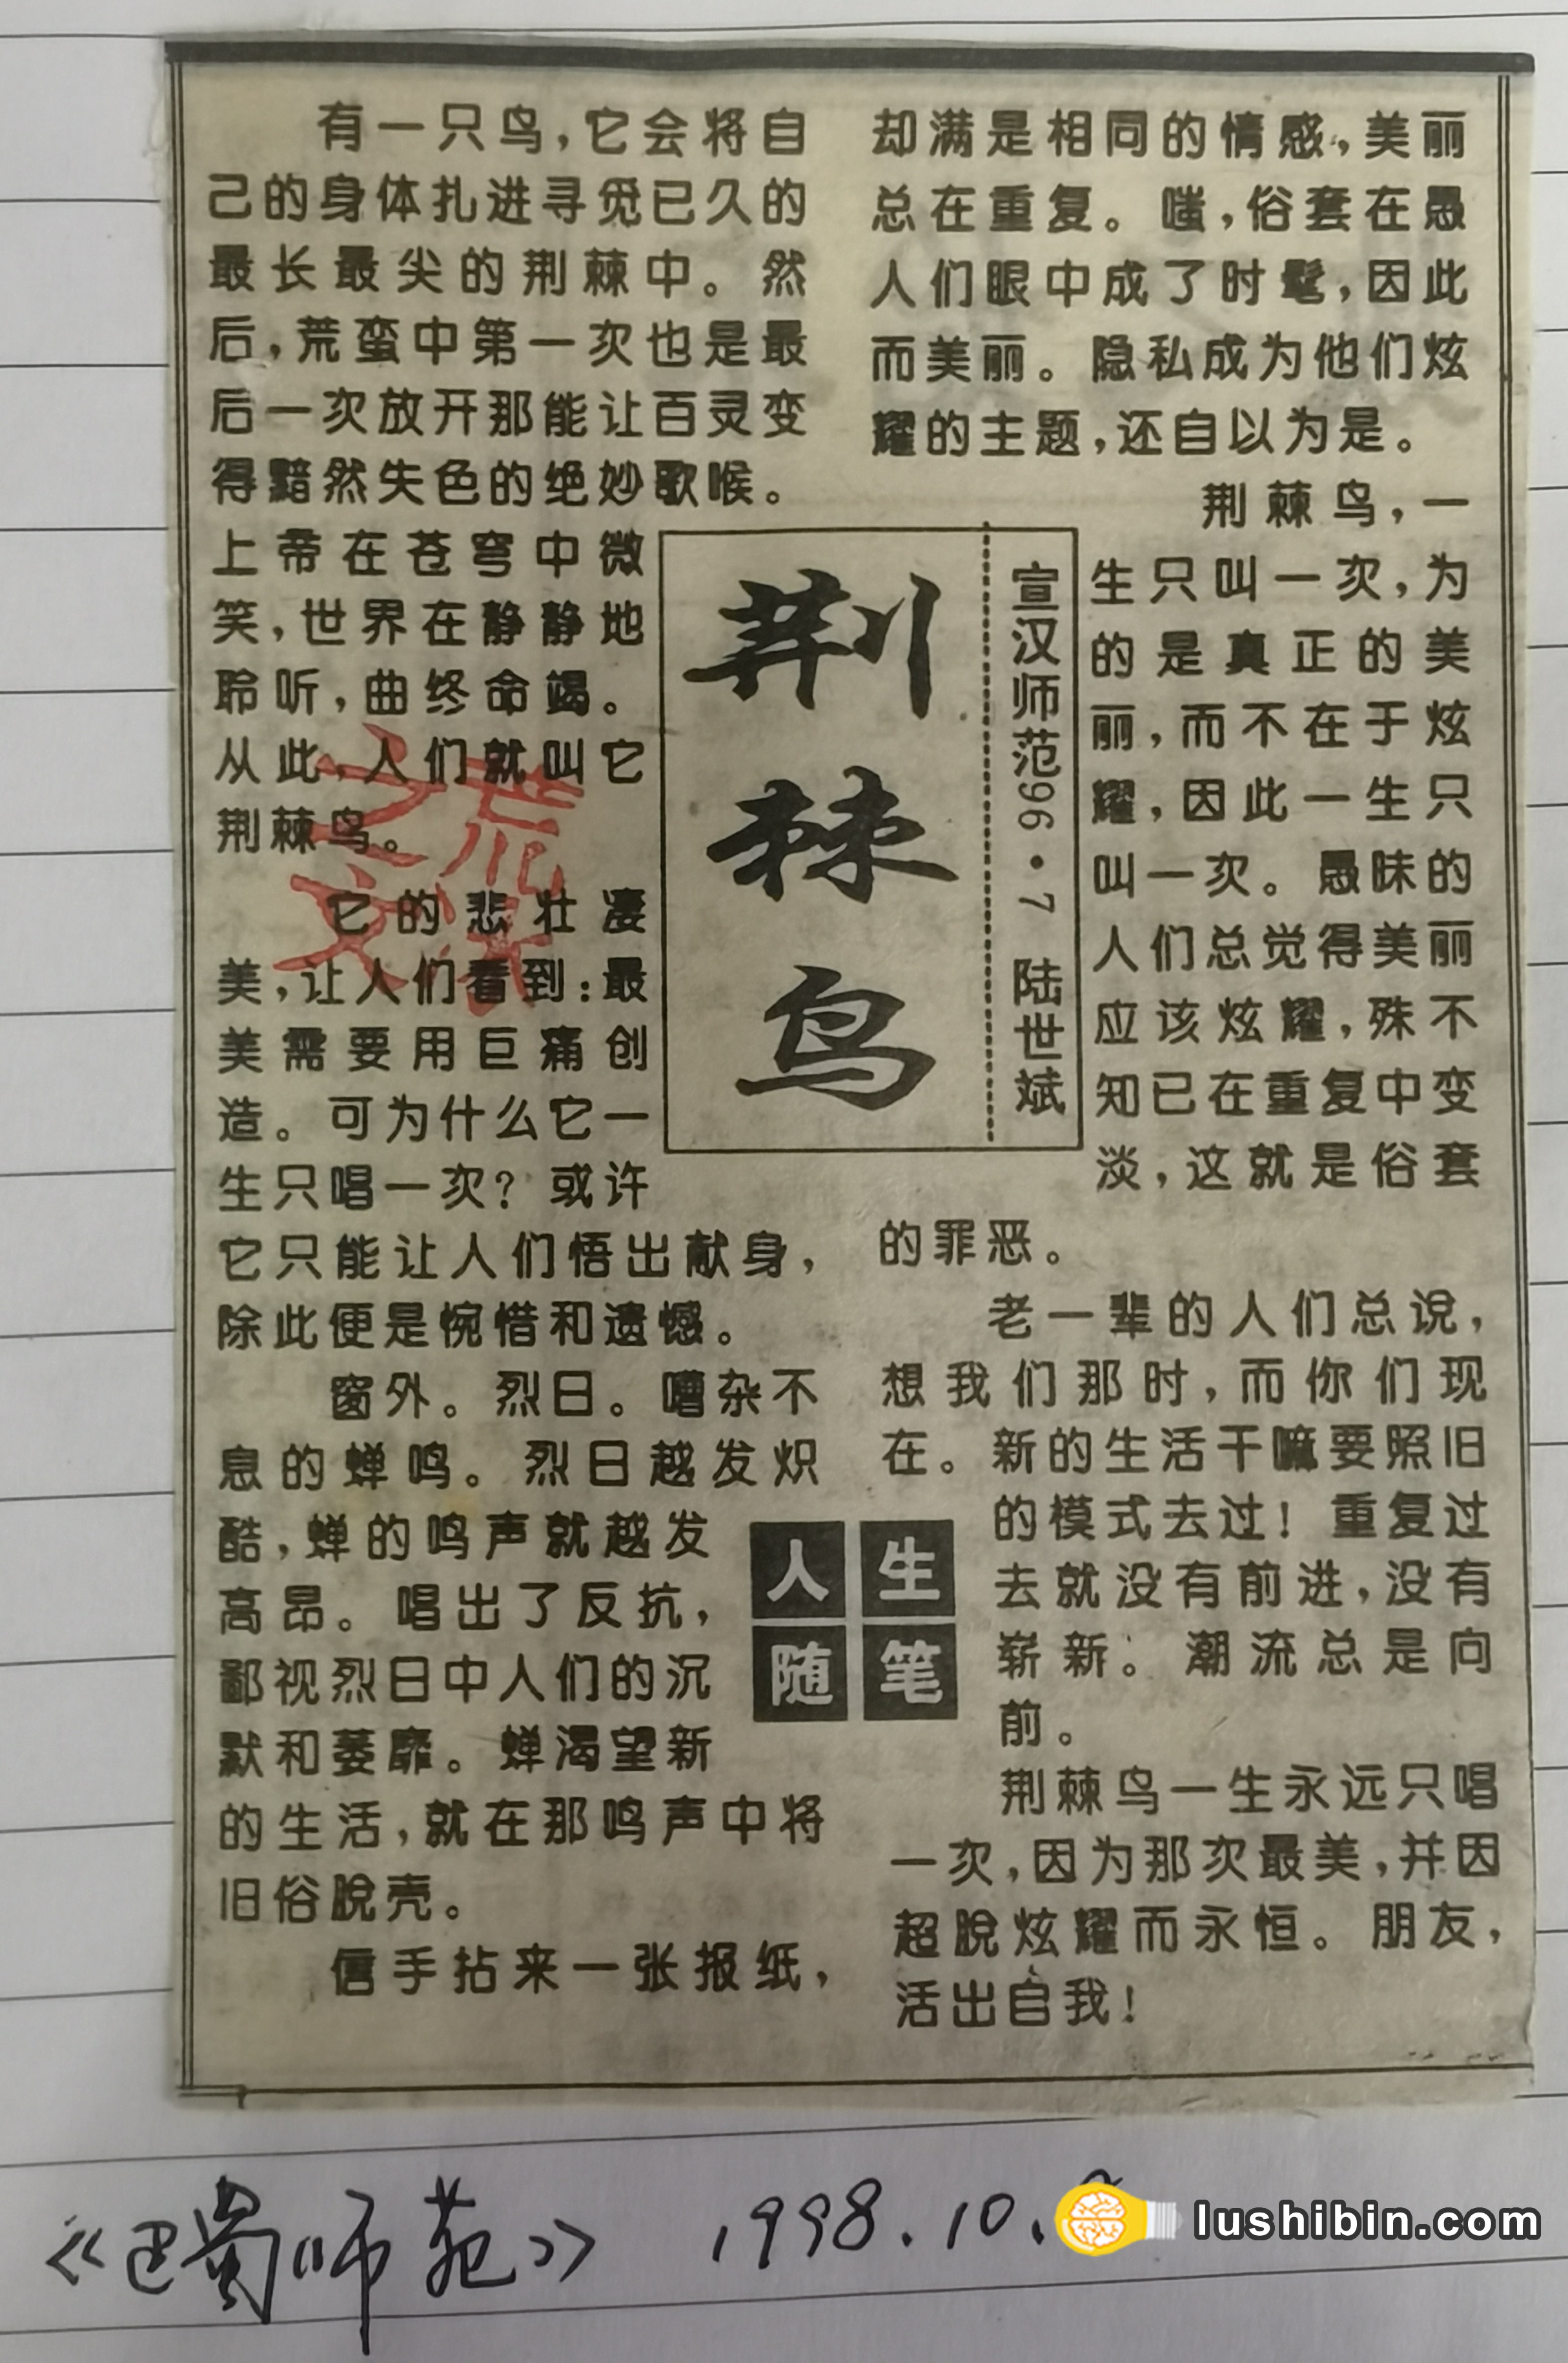 荆棘鸟
宣汉师范96·7 陆世斌
有一只鸟,它会将自
己的身体扎进寻觅已久的
最长最尖的荆棘中。然
后,荒蛮中第一次也是最
后一次放开那能让百灵变
得黯然失色的绝妙歌喉。
上帝在苍穹中微
笑,世界在静静地
聆听,曲终命竭。
从此,人们就叫它
荆棘鸟。
它的悲壮凄
美,让人们看到:最
美需要用巨痛创
造。可为什么它一
生只唱一次?或许
它只能让人们悟出献身,
除此便是惋惜和遗憾。
窗外。烈日。嘈杂不
息的蝉鸣。烈日越发炽
酷,蝉的鸣声就越发
高昂。唱出了反抗,
鄙视烈日中人们的沉
默和萎靡。蝉渴望新
的生活,就在那鸣声中将
旧俗脱壳。
信手拈来一张报纸,
却满是相同的情感,美丽
总在重复。嗤,俗套在愚
人们眼中成了时髦,因此
而美丽。隐私成为他们炫
耀的主题,还自以为是。
荆棘鸟,一
生只叫一次,为
的是真正的美
丽,而不在于炫
耀,因此一生只
叫一次。愚昧的
人们总觉得美丽
应该炫耀,殊不
知已在重复中变
淡,这就是俗套
的罪恶。
老一辈的人们总说,
想我们那时,而你们现
在。新的生活干嘛要照旧
的模式去过!重复过
去就没有前进,没有
崭新。潮流总是向
前。
荆棘鸟一生永远只唱
一次,因为那次最美,并因
超脱炫耀而永恒。朋友,
活出自我!
人生
随笔
《巴蜀师苑》 1998.10.
lushibin.com